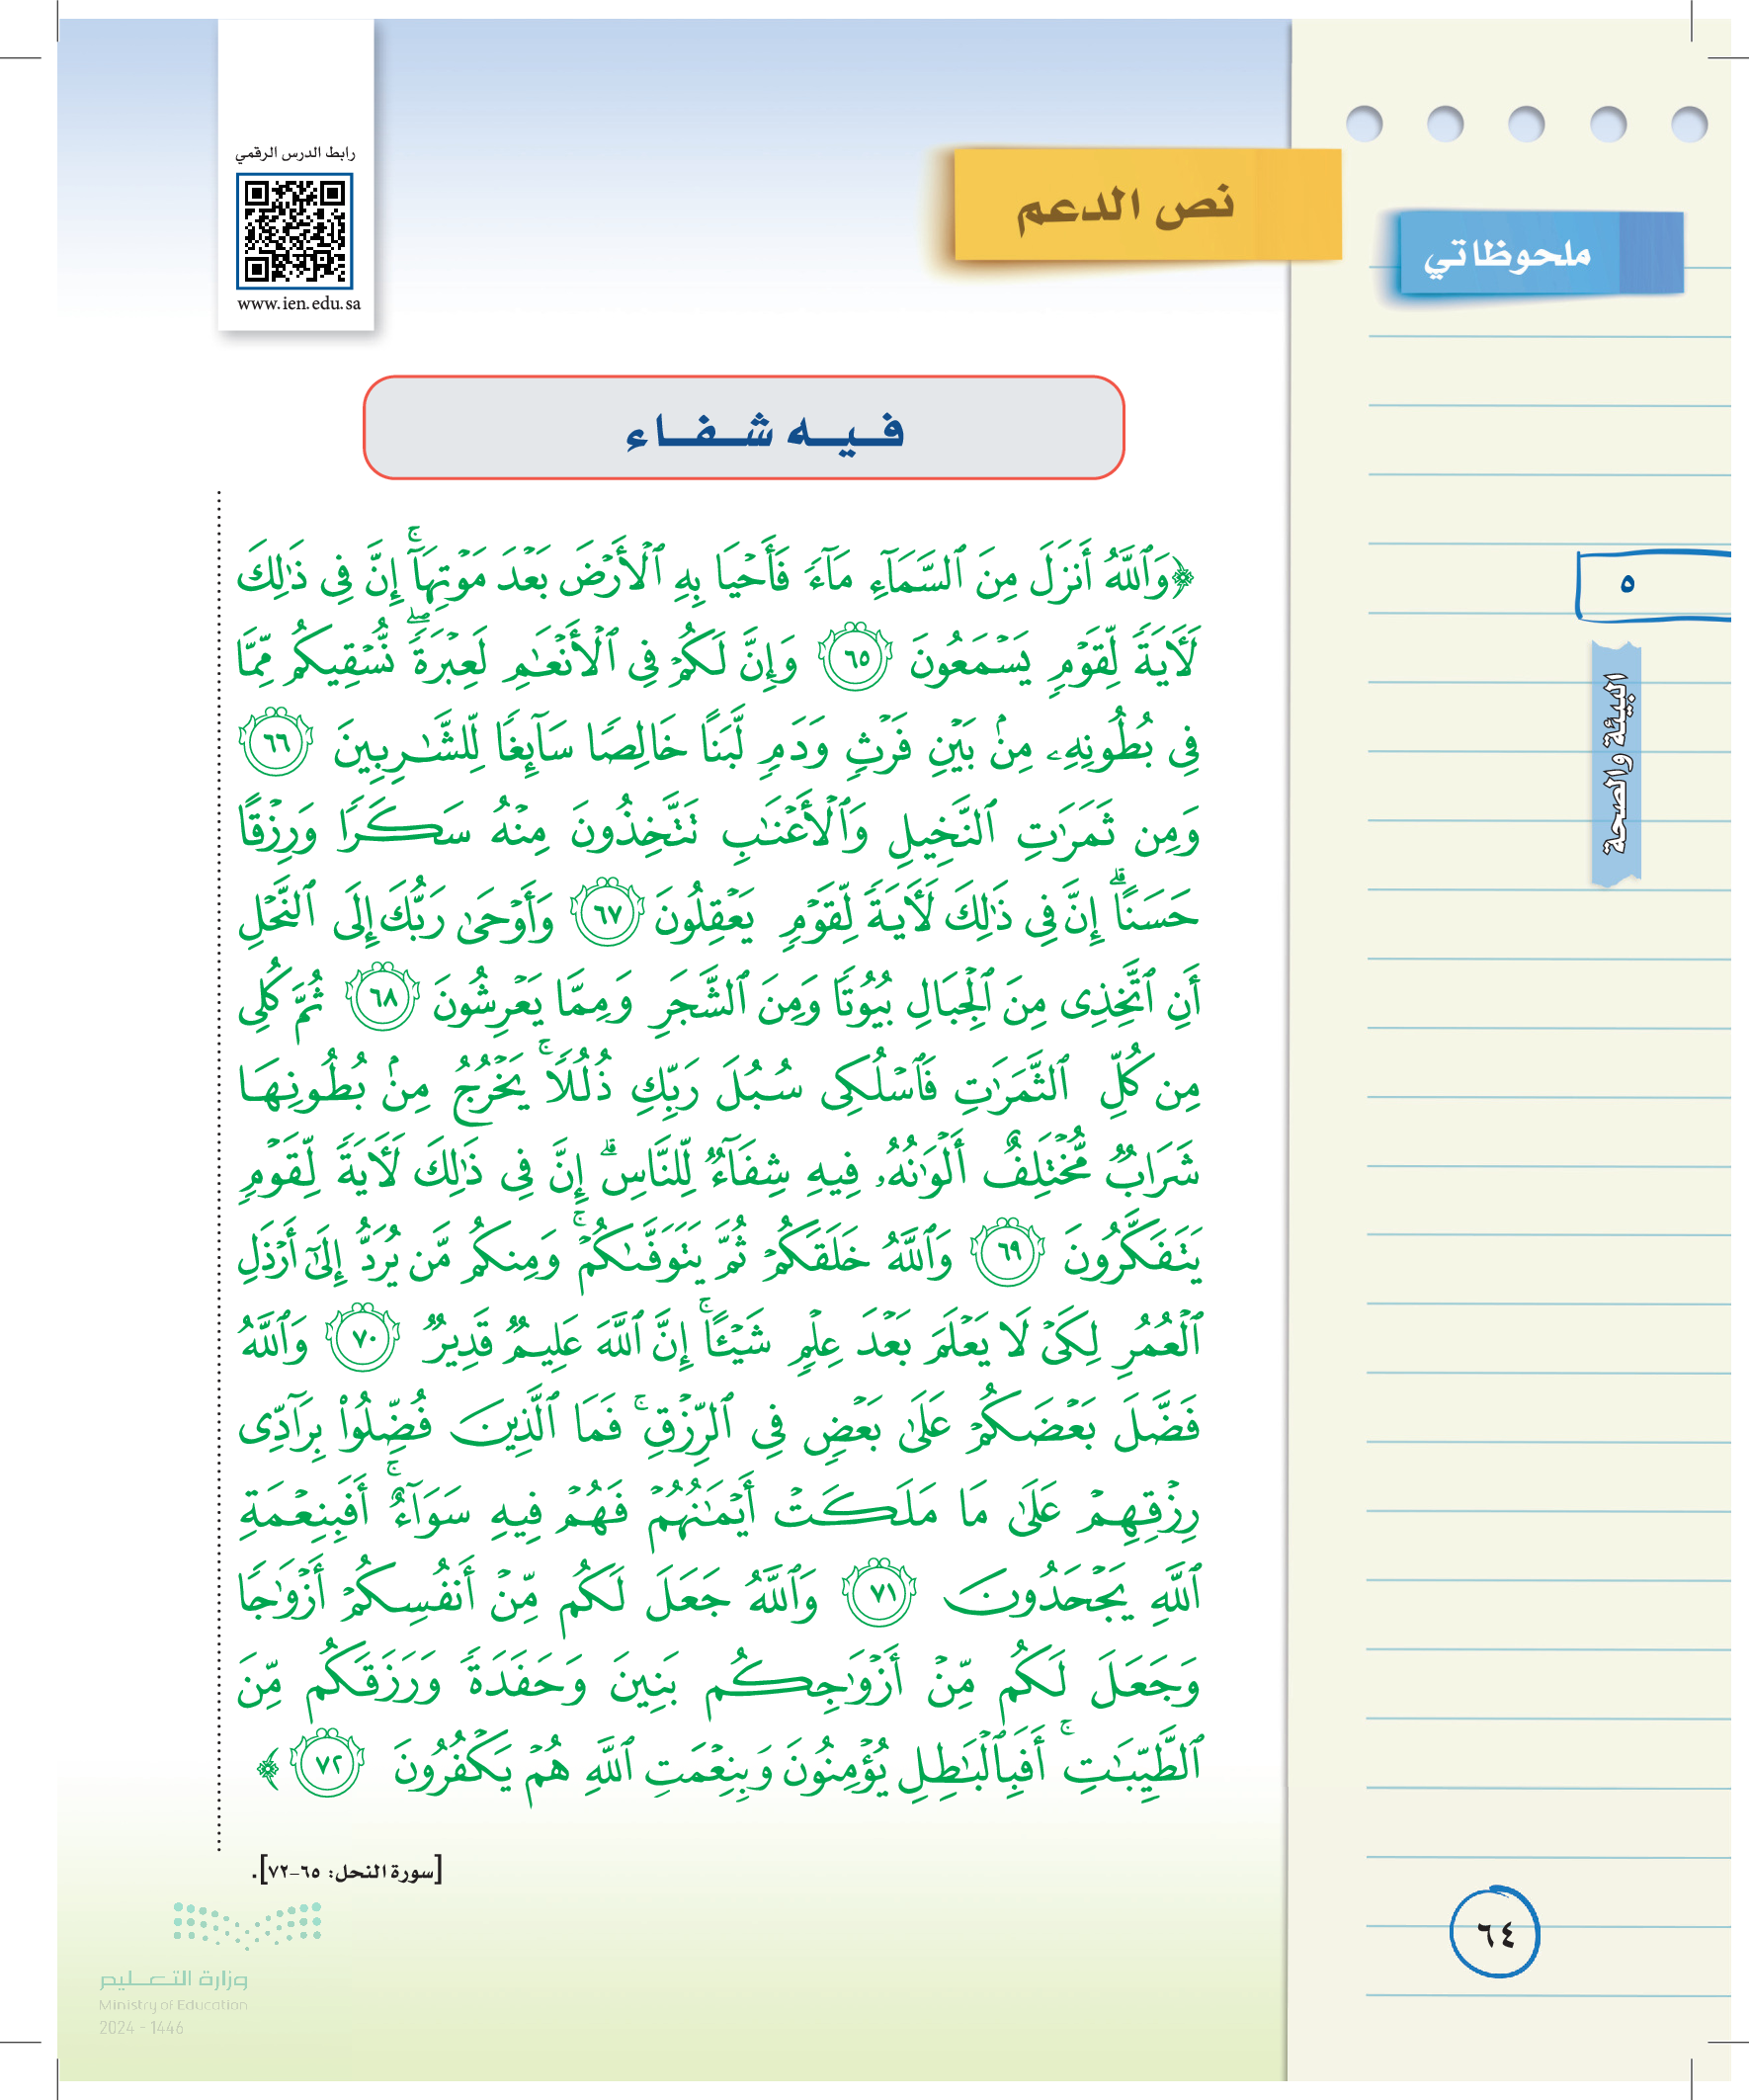 رابط الدرس الرقمي
www.ien.edu.sa
نص الدعم
ملحوظاتي
فيه شفاء
٥
البيئة والصحة
﴿وَٱللَّهُ أَنزَلَ مِنَ ٱلسَّمَآءِ مَآءٗ فَأَحۡيَا بِهِ ٱلۡأَرۡضَ بَعۡدَ مَوۡتِهَآۚ إِنَّ فِي ذَٰلِكَ
لَأٓيَةٗ لِّقَوۡمٖ يَسۡمَعُونَ ٦٥ وَإِنَّ لَكُمۡ فِي ٱلۡأَنۡعَٰمِ لَعِبۡرَةٗۖ نُّسۡقِيكُم مِّمَّا
فِي بُطُونِهِۦ مِنۢ بَيۡنِ فَرۡثٖ وَدَمٖ لَّبَنًا خَالِصٗا سَآئِغٗا لِّلشَّٰرِبِينَ ٦٦
وَمِن ثَمَرَٰتِ ٱلنَّخِيلِ وَٱلۡأَعۡنَٰبِ تَتَّخِذُونَ مِنۡهُ سَكَرٗا وَرِزۡقًا
حَسَنًاۗ إِنَّ فِي ذَٰلِكَ لَأٓيَةٗ لِّقَوۡمٖ يَعۡقِلُونَ ٦٧ وَأَوۡحَىٰ رَبُّكَ إِلَى ٱلنَّحۡلِ
أَنِ ٱتَّخِذِي مِنَ ٱلۡجِبَالِ بُيُوتٗا وَمِنَ ٱلشَّجَرِ وَمِمَّا يَعۡرِشُونَ ٦٨ ثُمَّ كُلِي
مِن كُلِّ ٱلثَّمَرَٰتِ فَٱسۡلُكِي سُبُلَ رَبِّكِ ذُلُلٗاۚ يَخۡرُجُ مِنۢ بُطُونِهَا
شَرَابٞ مُّخۡتَلِفٌ أَلۡوَٰنُهُۥ فِيهِ شِفَآءٞ لِّلنَّاسِۗ إِنَّ فِي ذَٰلِكَ لَأٓيَةٗ لِّقَوۡمٖ
يَتَفَكَّرُونَ ٦٩ وَٱللَّهُ خَلَقَكُمۡ ثُمَّ يَتَوَفَّىٰكُمۡۚ وَمِنكُم مَّن يُرَدُّ إِلَىٰٓ أَرۡذَلِ
ٱلۡعُمُرِ لِكَيۡ لَا يَعۡلَمَ بَعۡدَ عِلۡمٖ شَيۡـًٔاۚ إِنَّ ٱللَّهَ عَلِيمٞ قَدِيرٞ ٧٠ وَٱللَّهُ
فَضَّلَ بَعۡضَكُمۡ عَلَىٰ بَعۡضٖ فِي ٱلرِّزۡقِۚ فَمَا ٱلَّذِينَ فُضِّلُواْ بِرَآدِّي
رِزۡقِهِمۡ عَلَىٰ مَا مَلَكَتۡ أَيۡمَٰنُهُمۡ فَهُمۡ فِيهِ سَوَآءٌۚ أَفَبِنِعۡمَةِ
ٱللَّهِ يَجۡحَدُونَ ٧١ وَٱللَّهُ جَعَلَ لَكُم مِّنۡ أَنفُسِكُمۡ أَزۡوَٰجٗا
وَجَعَلَ لَكُم مِّنۡ أَزۡوَٰجِكُم بَنِينَ وَحَفَدَةٗ وَرَزَقَكُم مِّنَ
ٱلطَّيِّبَٰتِۚ أَفَبِٱلۡبَٰطِلِ يُؤۡمِنُونَ وَبِنِعۡمَتِ ٱللَّهِ هُمۡ يَكۡفُرُونَ ٧٢ ﴾
[سورة النحل: ٦٥-٧٢].
٦٤
وزارة التعليم
Ministry of Education
2024 - 1446